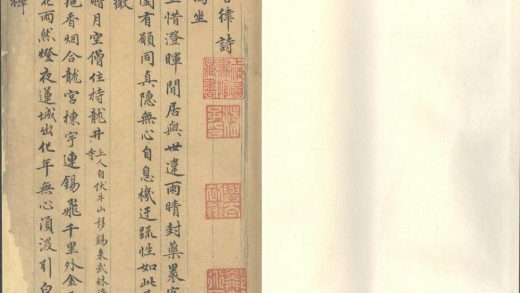 言律詩
坐
惜澄暉閒居與世違雨晴封藥裹
有頗同真隱無心自息機迂疏性如此
贈月空僧住持龍井寺
上人自伏牛山移錫來武林
抱香烟合龍宮棟宇連錫飛千里外金
花雨然燈夜蓮城出化年無心須汲引白
禪
上海圖書館藏